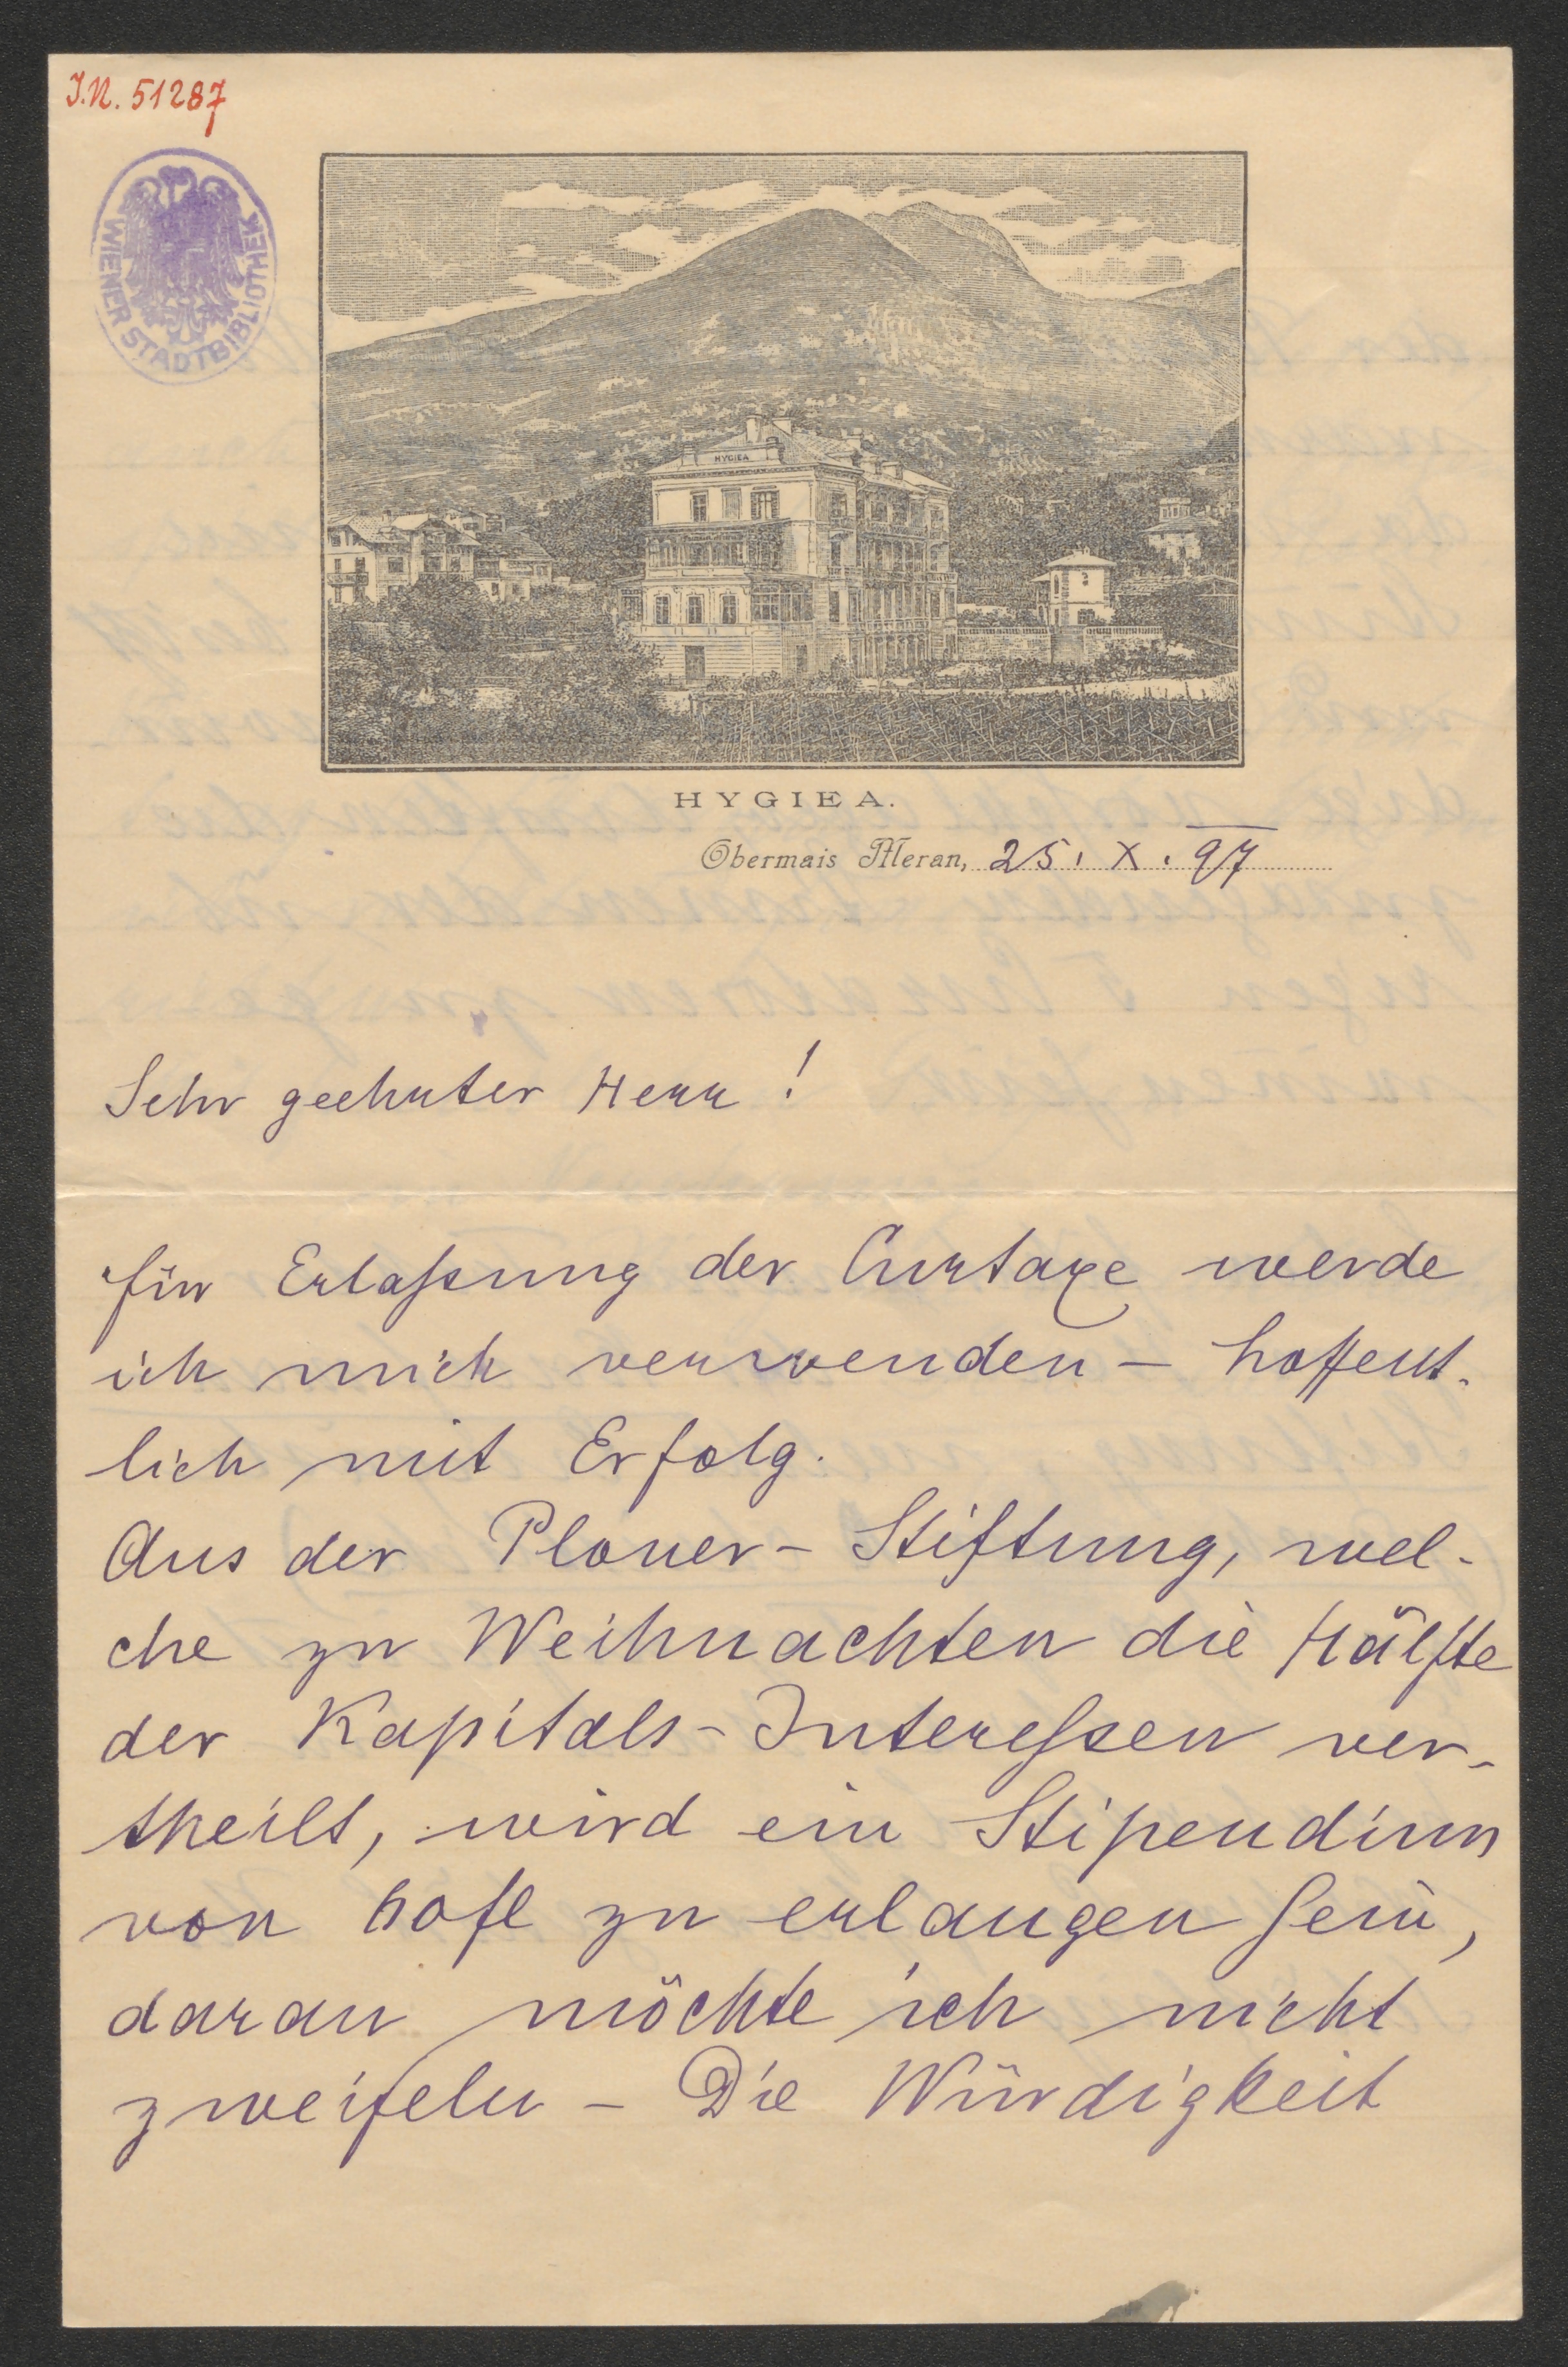 J.N. 51287
WIENER STADTBIBLIOTHEK
HYGIEA
HYGIEA.
Obermais Meran, 25. X. 97
Sehr geehrter Herr!
für Erlaßung der Curtaxe werde
ich mich verwenden – hoffent-
lich mit Erfolg.
Aus der Ploner-Stiftung, wel-
che zu Weihnachten die Hälfte
der Kapitals-Intereßen ver-
theilt, wird ein Stipendium
von 60 fl zu erlangen sein,
daran möchte ich nicht
zweifeln – Die Würdigkeit